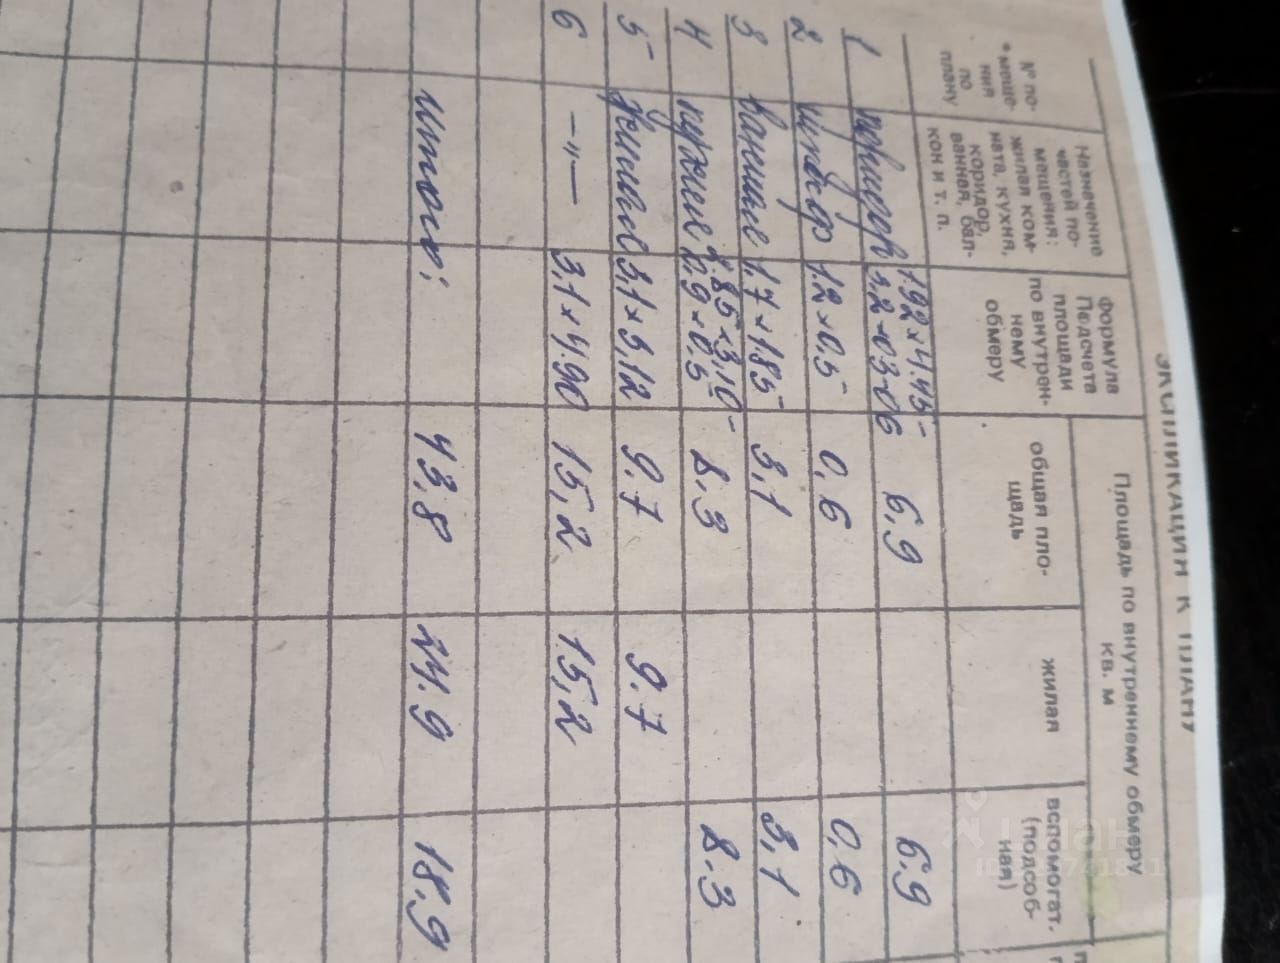 ЭКСПЛИКАЦИЯ К ПЛАНУ
№ по-
меще-
ния
по
плану
Назначение
частей по-
мещения:
жилая ком-
ната, кухня,
коридор,
ванная, бал-
кон и т. п.
Формула
Подсчета
площади
по внутрен-
нему
обмеру
Площадь по внутреннему обмеру
кв. м
общая пло-
щадь
жилая
вспомогат.
(подсоб-
ная)
1 коридор 1.92×4.45- 6,9 6.9
0,6
2 шкаф 1.2×0.5 0,6 0,6
3 ванная 1.7×1.85 3,1 3,1
4 кухня 2.85×3.10- 8.3 8.3
0,9×0.5
5 жилая 3,1×3,12 9.7 9.7
6 –„– 3,1×4.90 15,2 15,2
итого: 43,8 24.9 18,9